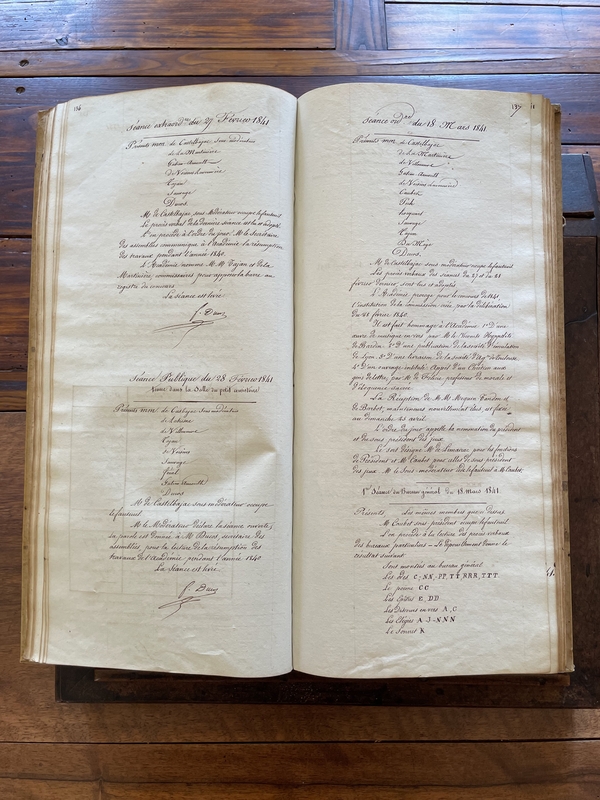 136
Séance extraord.re du 27 Février 1841
Présents mm. de Castelbajac sous modérateur
de La Martinière
Gatien Arnoult
de Voisins Lavernière
Cajan
Sauvage
Ducos
M. de Castelbajac sous modérateur occupe le fauteuil.
Le procès verbal de la dernière séance est lu et adopté.
L'on procède à l'ordre du jour: M. le Secrétaire
des assemblées communique à l'Académie la résomption
des travaux pendant l'année 1840.
L'Académie nomme M. M. Cajan et de la
Martinière, commissaires pour apposer la barre au
registre du concours
La séance est levée
f. Ducos
Séance Publique du 28 Février 1841
tenue dans la Salle du petit consistoire
Présents mm. de Castelbajac Sous modérateur
de Lahisme
de Villeneuve
Cajan
de Voisins
Sauvage
Pinel
Gatien Arnoult
Ducos
M. de Castelbajac sous modérateur occupe
le fauteuil.
M. le Modérateur déclare la séance ouverte,
la parole est donnée à M. Ducos, secrétaire des
assemblées, pour la lecture de la résomption des
travaux de l'Académie pendant l'année 1840
La Séance est levée.
f. Ducos
137
Séance ord.re du 18 Mars 1841
Présents mm. de Castelbajac
de la Martinière
de Villeneuve
Gatien Arnoult
de Voisins Lavernière
Caubet
Pech
Sauvage
Cajan
Du Mège
Ducos
M. de Castelbajac, sous modérateur occupe le fauteuil.
Les procès verbaux des séances du 27 et du 28
février dernier, sont lus et adoptés.
L'Académie proroge pour le concours de 1841
l'institution de la commission créée, par la délibération
du 28 février 1840.
Il est fait hommage à l'Académie: 1º D'une
œuvre de musique en vers par M. le Vicomte Hippolite
de Bardon. 2º D'une publication de la société d'émulation
de Lyon. 3º D'une livraison de la société d'Ag.re de Toulouse.
4º D'un ouvrage intitulé: Appel d'un Chrétien aux
gens de lettres, par M. de Felice, professeur de morale et
d'éloquence sacrée.
La Réception de M. M. Moquin Tandon et
de Barbot, mainteneurs nouvellement élus, est fixée
au dimanche 25 avril.
L'ordre du jour appelle la nomination du président
et du sous président des jeux.
Le sort désigne M. de Limairac pour les fonctions
de Président et M. Caubet pour celles de sous président
des jeux. M. le Sous-modérateur cède le fauteuil à M. Caubet
1.re Séance du Bureau général du 18 mars 1841.
Présents. Les mêmes membres que ci dessus
M. Caubet sous président occupe le fauteuil.
L'on procède à la lecture des procès verbaux
des bureaux particuliers – Le dépouillement donne le
résultat suivant
Sont montées au bureau général
Les Odes C-NN-PP, TT, RRR, TTT.
Le poème CC
Les Epîtres E, DD
Les Discours en vers A, C
Les Elégies A J-NNN
Le Sonnet K